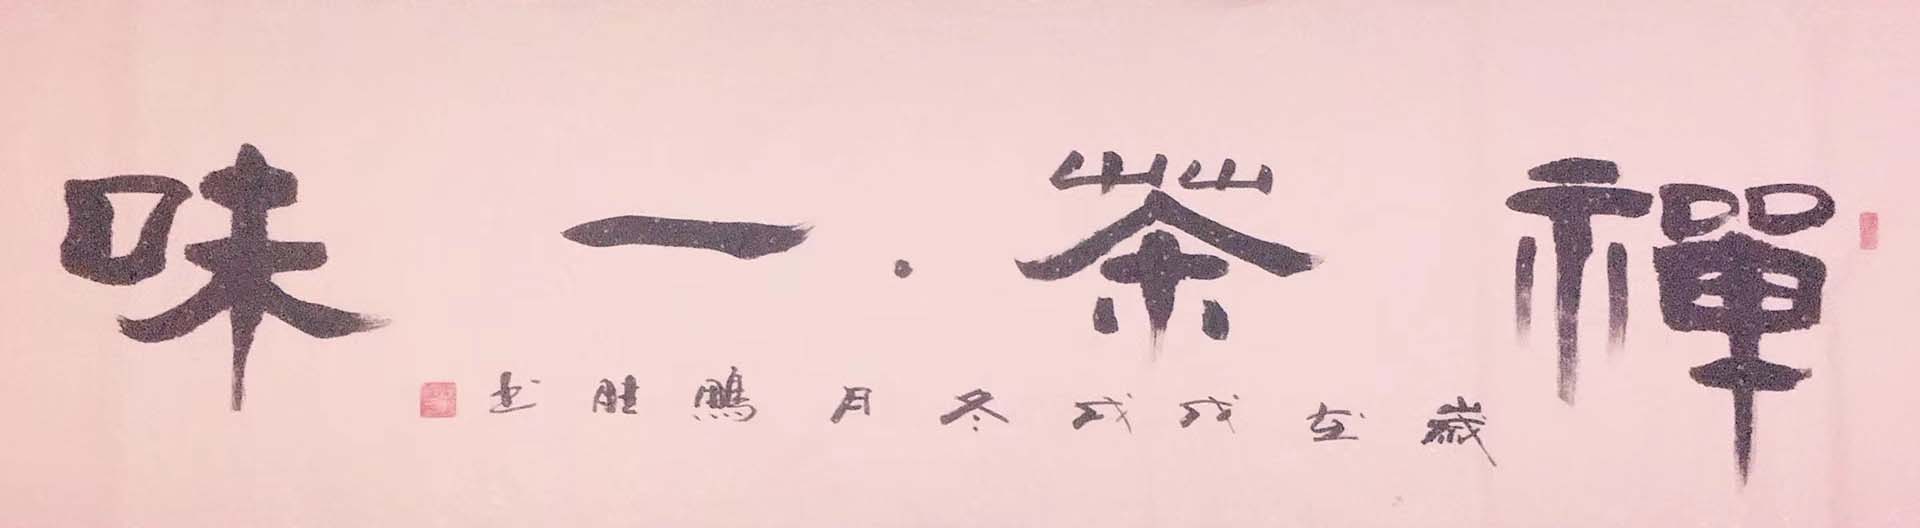 禪茶·一味
歲在戊戌冬月鵬胜书